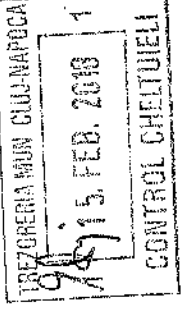 TREZORERIA MUN CLUJ-NAPOCA
15. FEB. 2018
1
CONTROL CHELTUIELI